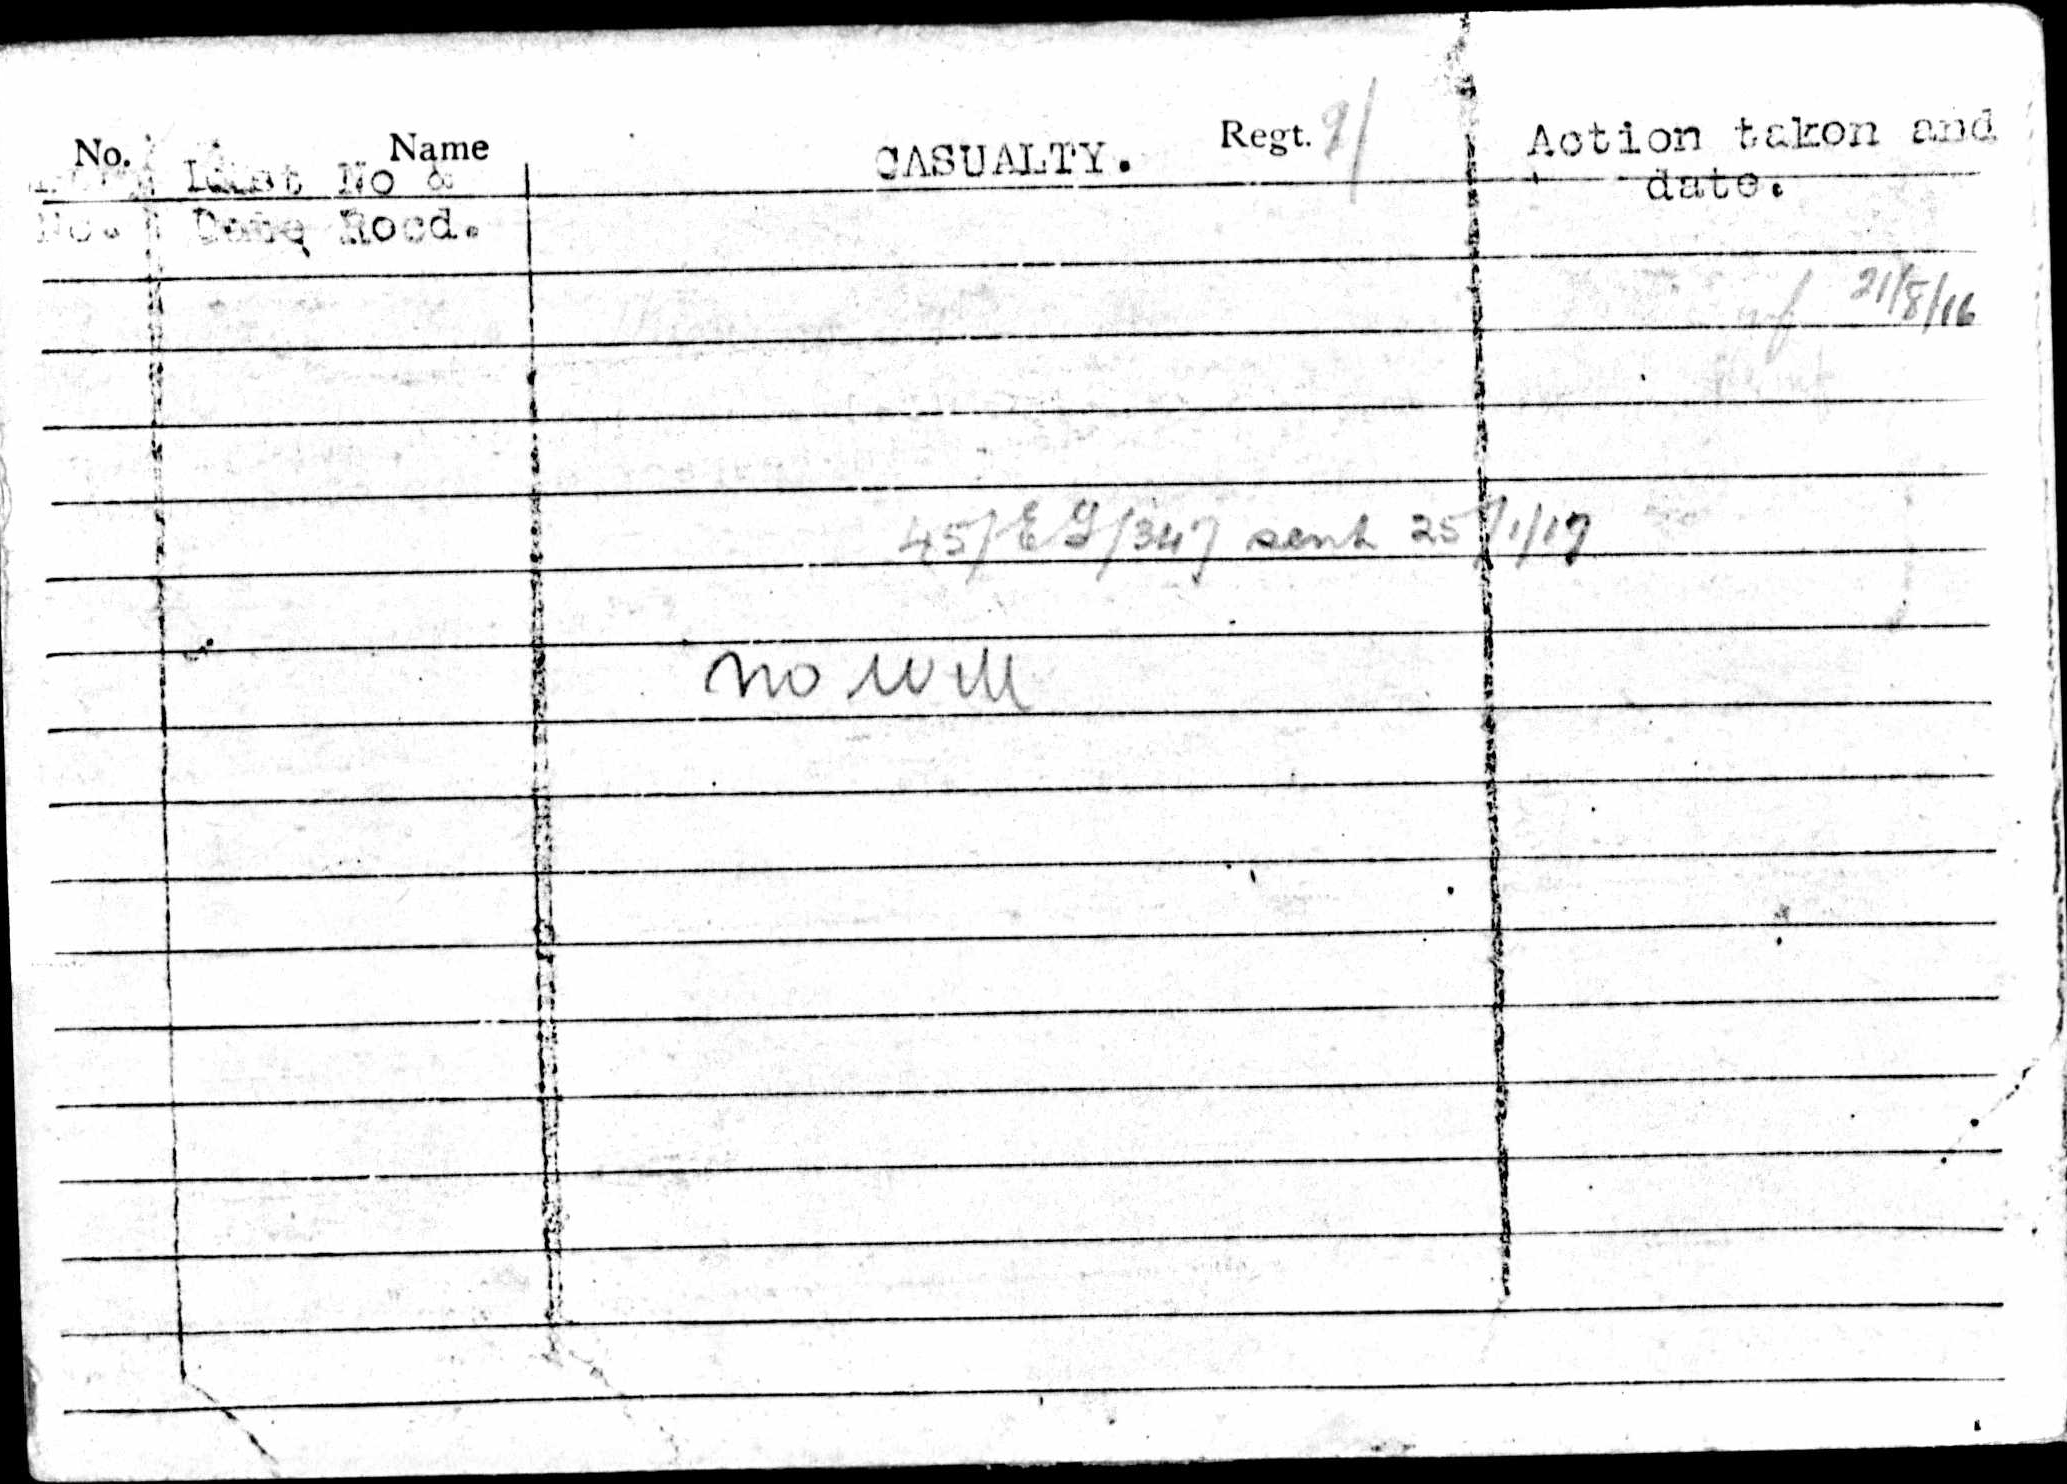 No. Name CASUALTY. Regt. 9/ Action taken and
List No & date.
No. Date Recd.
21/8/16
45/EG/347 sent 25/1/17
no will